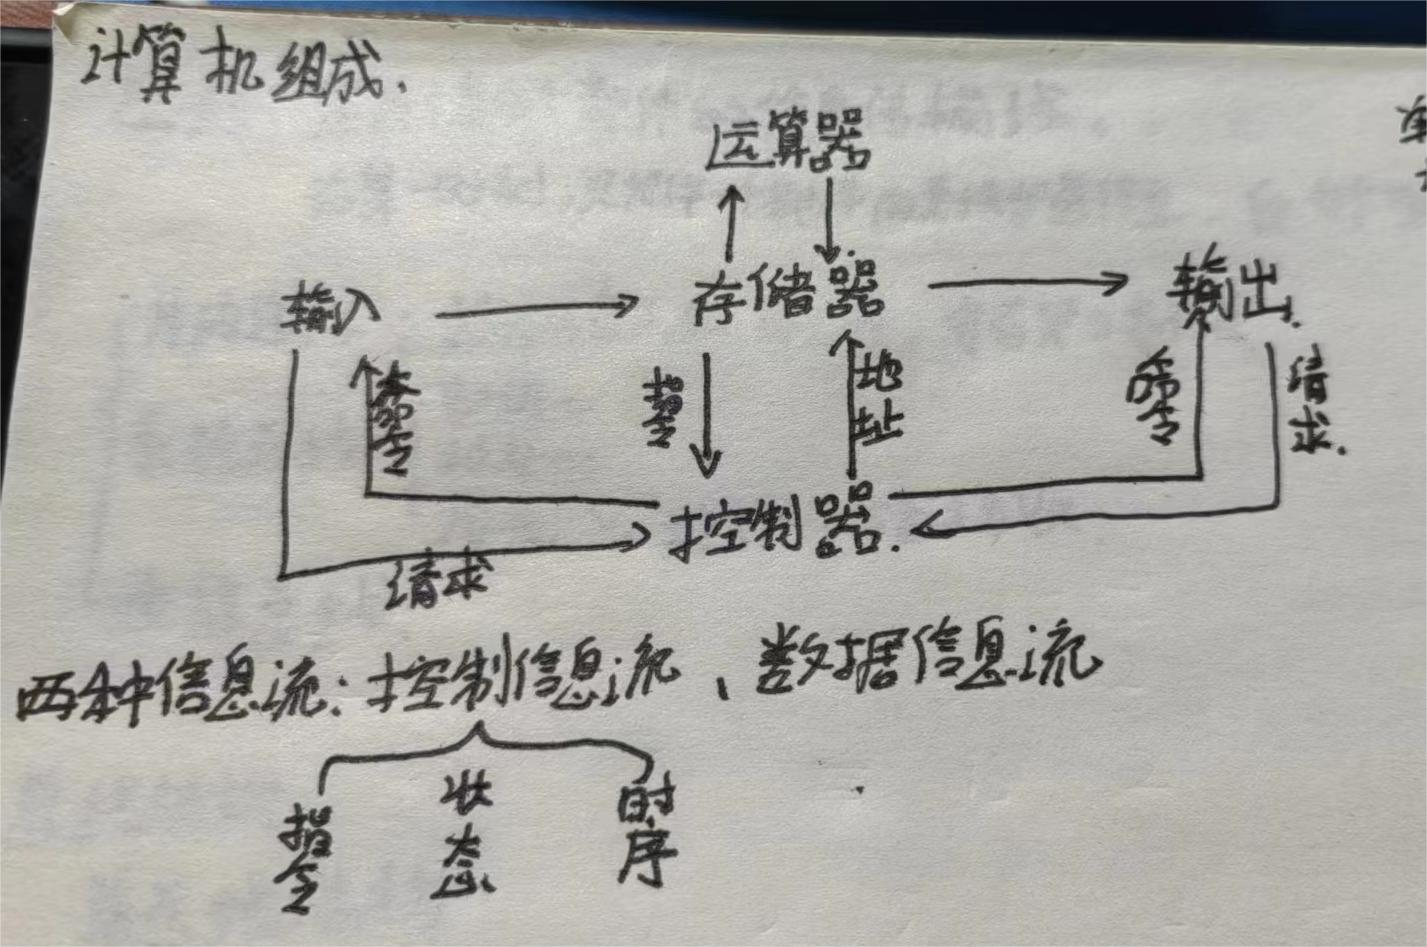 计算机组成.
运算器
输入
存储器
输出.
命令
指令
地址
命令
请求.
控制器.
请求
两种信息流:控制信息流、数据信息流
指令
状态
时序